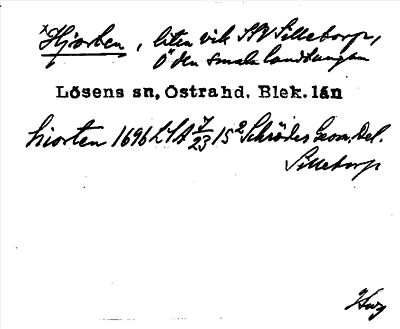 ×Hjorten, liten vik NV Silletorp,
Ö den smala landtungan
Lösens sn, Östra hd. Blek. län
hiorten 1696 LSA 7/23 15² Schröders Geom. Del.
Silletorp